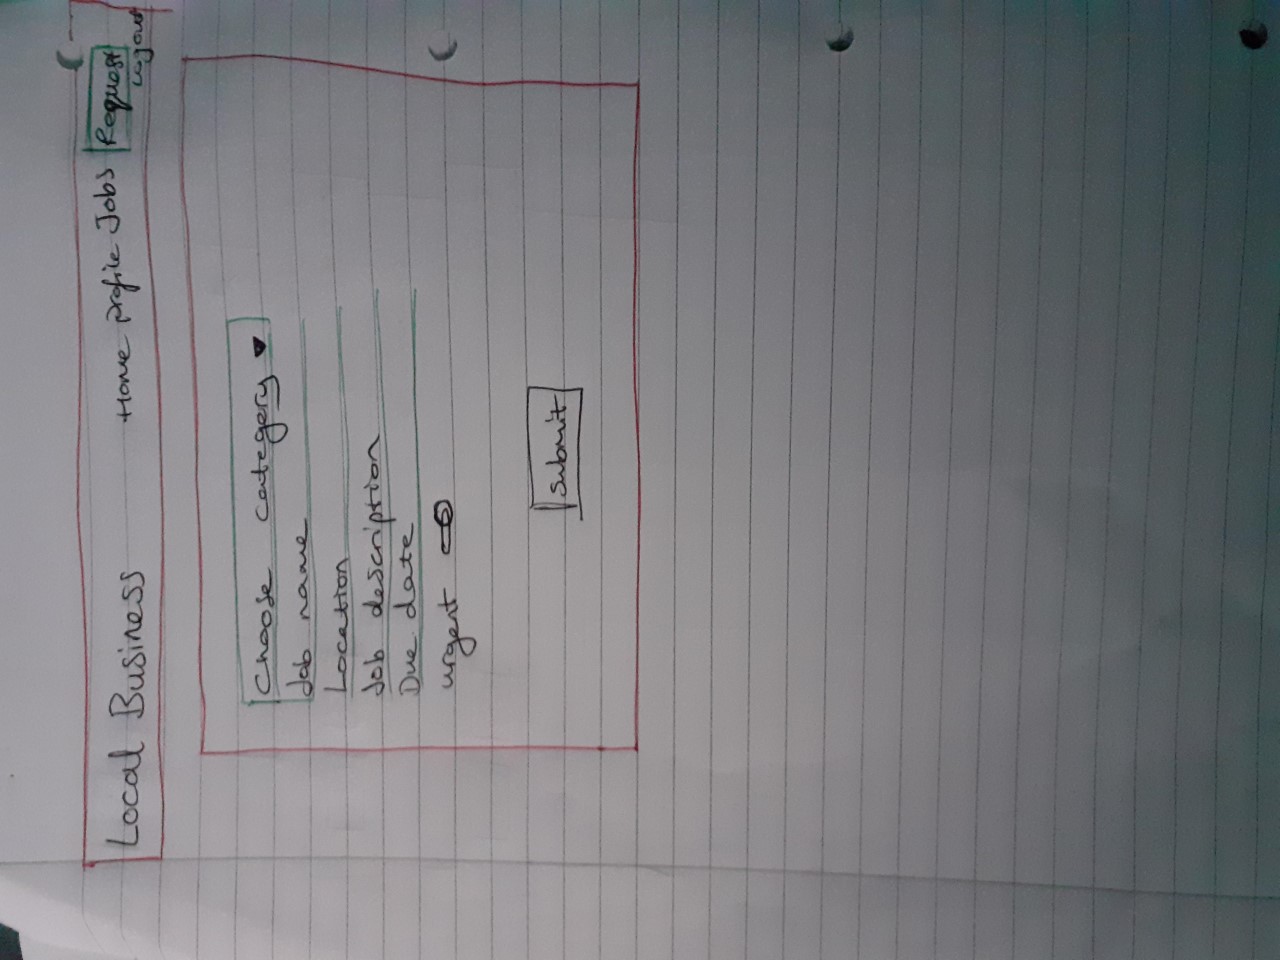 Local Business Home profile Jobs Request
logout
Choose category
Job name
Location
Job description
Due date
urgent
Submit